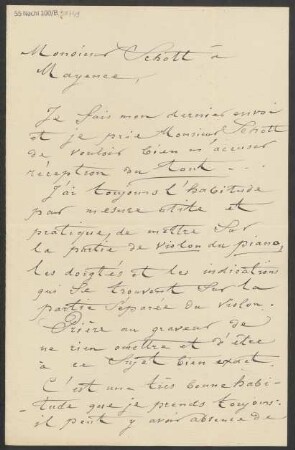 Monsieur Schott à
Mayence,
Je fais mon dernier envoi
et je prie Monsieur Schott
de vouloir bien m'accuser
réception du tout...
J'ai toujours l'habitude
par mesure utile et
pratique, de mettre sur
la partie de violon du piano,
les doigtés et les indications
qui se trouvent sur la
partie séparée du violon.
Prière au graveur de
ne rien omettre et d'être
à ce sujet bien exact.
C'est une très bonne habi-
tude que je prends toujours:
il peut y avoir absence de